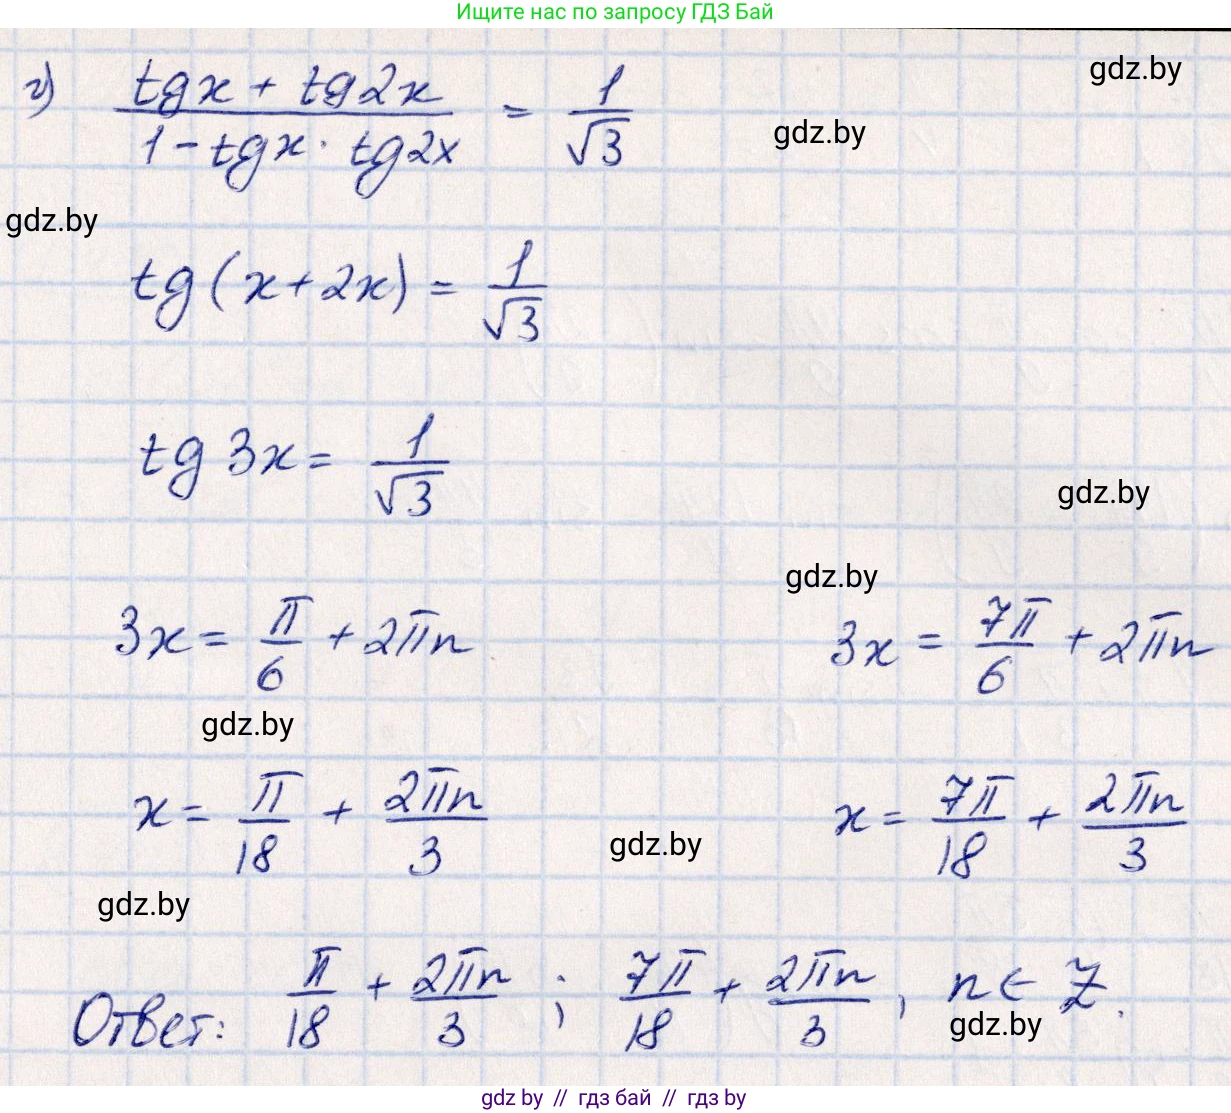 Ищите нас по запросу ГДЗ Бай
г) (tgx + tg2x)/(1 - tgx · tg2x) = 1/√3
gdz.by
gdz.by
gdz.by
tg(x+2x) = 1/√3
tg 3x = 1/√3
gdz.by
gdz.by
3x = π/6 + 2πn 3x = 7π/6 + 2πn
gdz.by
x = π/18 + 2πn/3 x = 7π/18 + 2πn/3
gdz.by
gdz.by
Ответ: π/18 + 2πn/3 ; 7π/18 + 2πn/3 , n ∈ Z.
gdz.by
gdz.by // гдз бай // гдз by